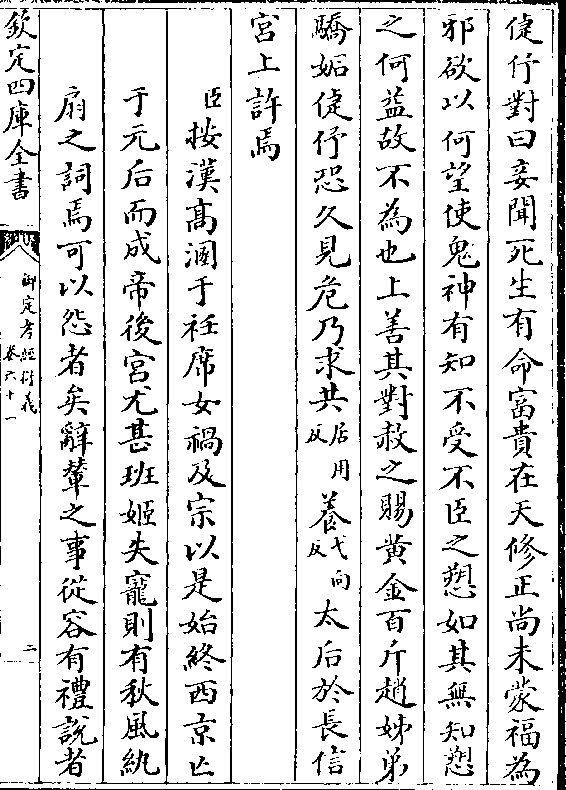 倢伃對曰妾聞死生有命富貴在天修正尚未蒙福為
邪欲以何望使鬼神有知不受不臣之愬如其無知愬
之何益故不為也上善其對赦之賜黄金百斤趙姊弟
驕妬倢伃恐久見危乃求共居用反養弋向反太后於長信
宮上許焉
臣按漢髙溺于袵席女禍及宗以是始終西京亡
于元后而成帝後宮尤甚班姬失寵則有秋風紈
扇之詞焉可以怨者矣辭輦之事從容有禮說者
欽定四庫全書
御定孝經衍義
卷六十一
二